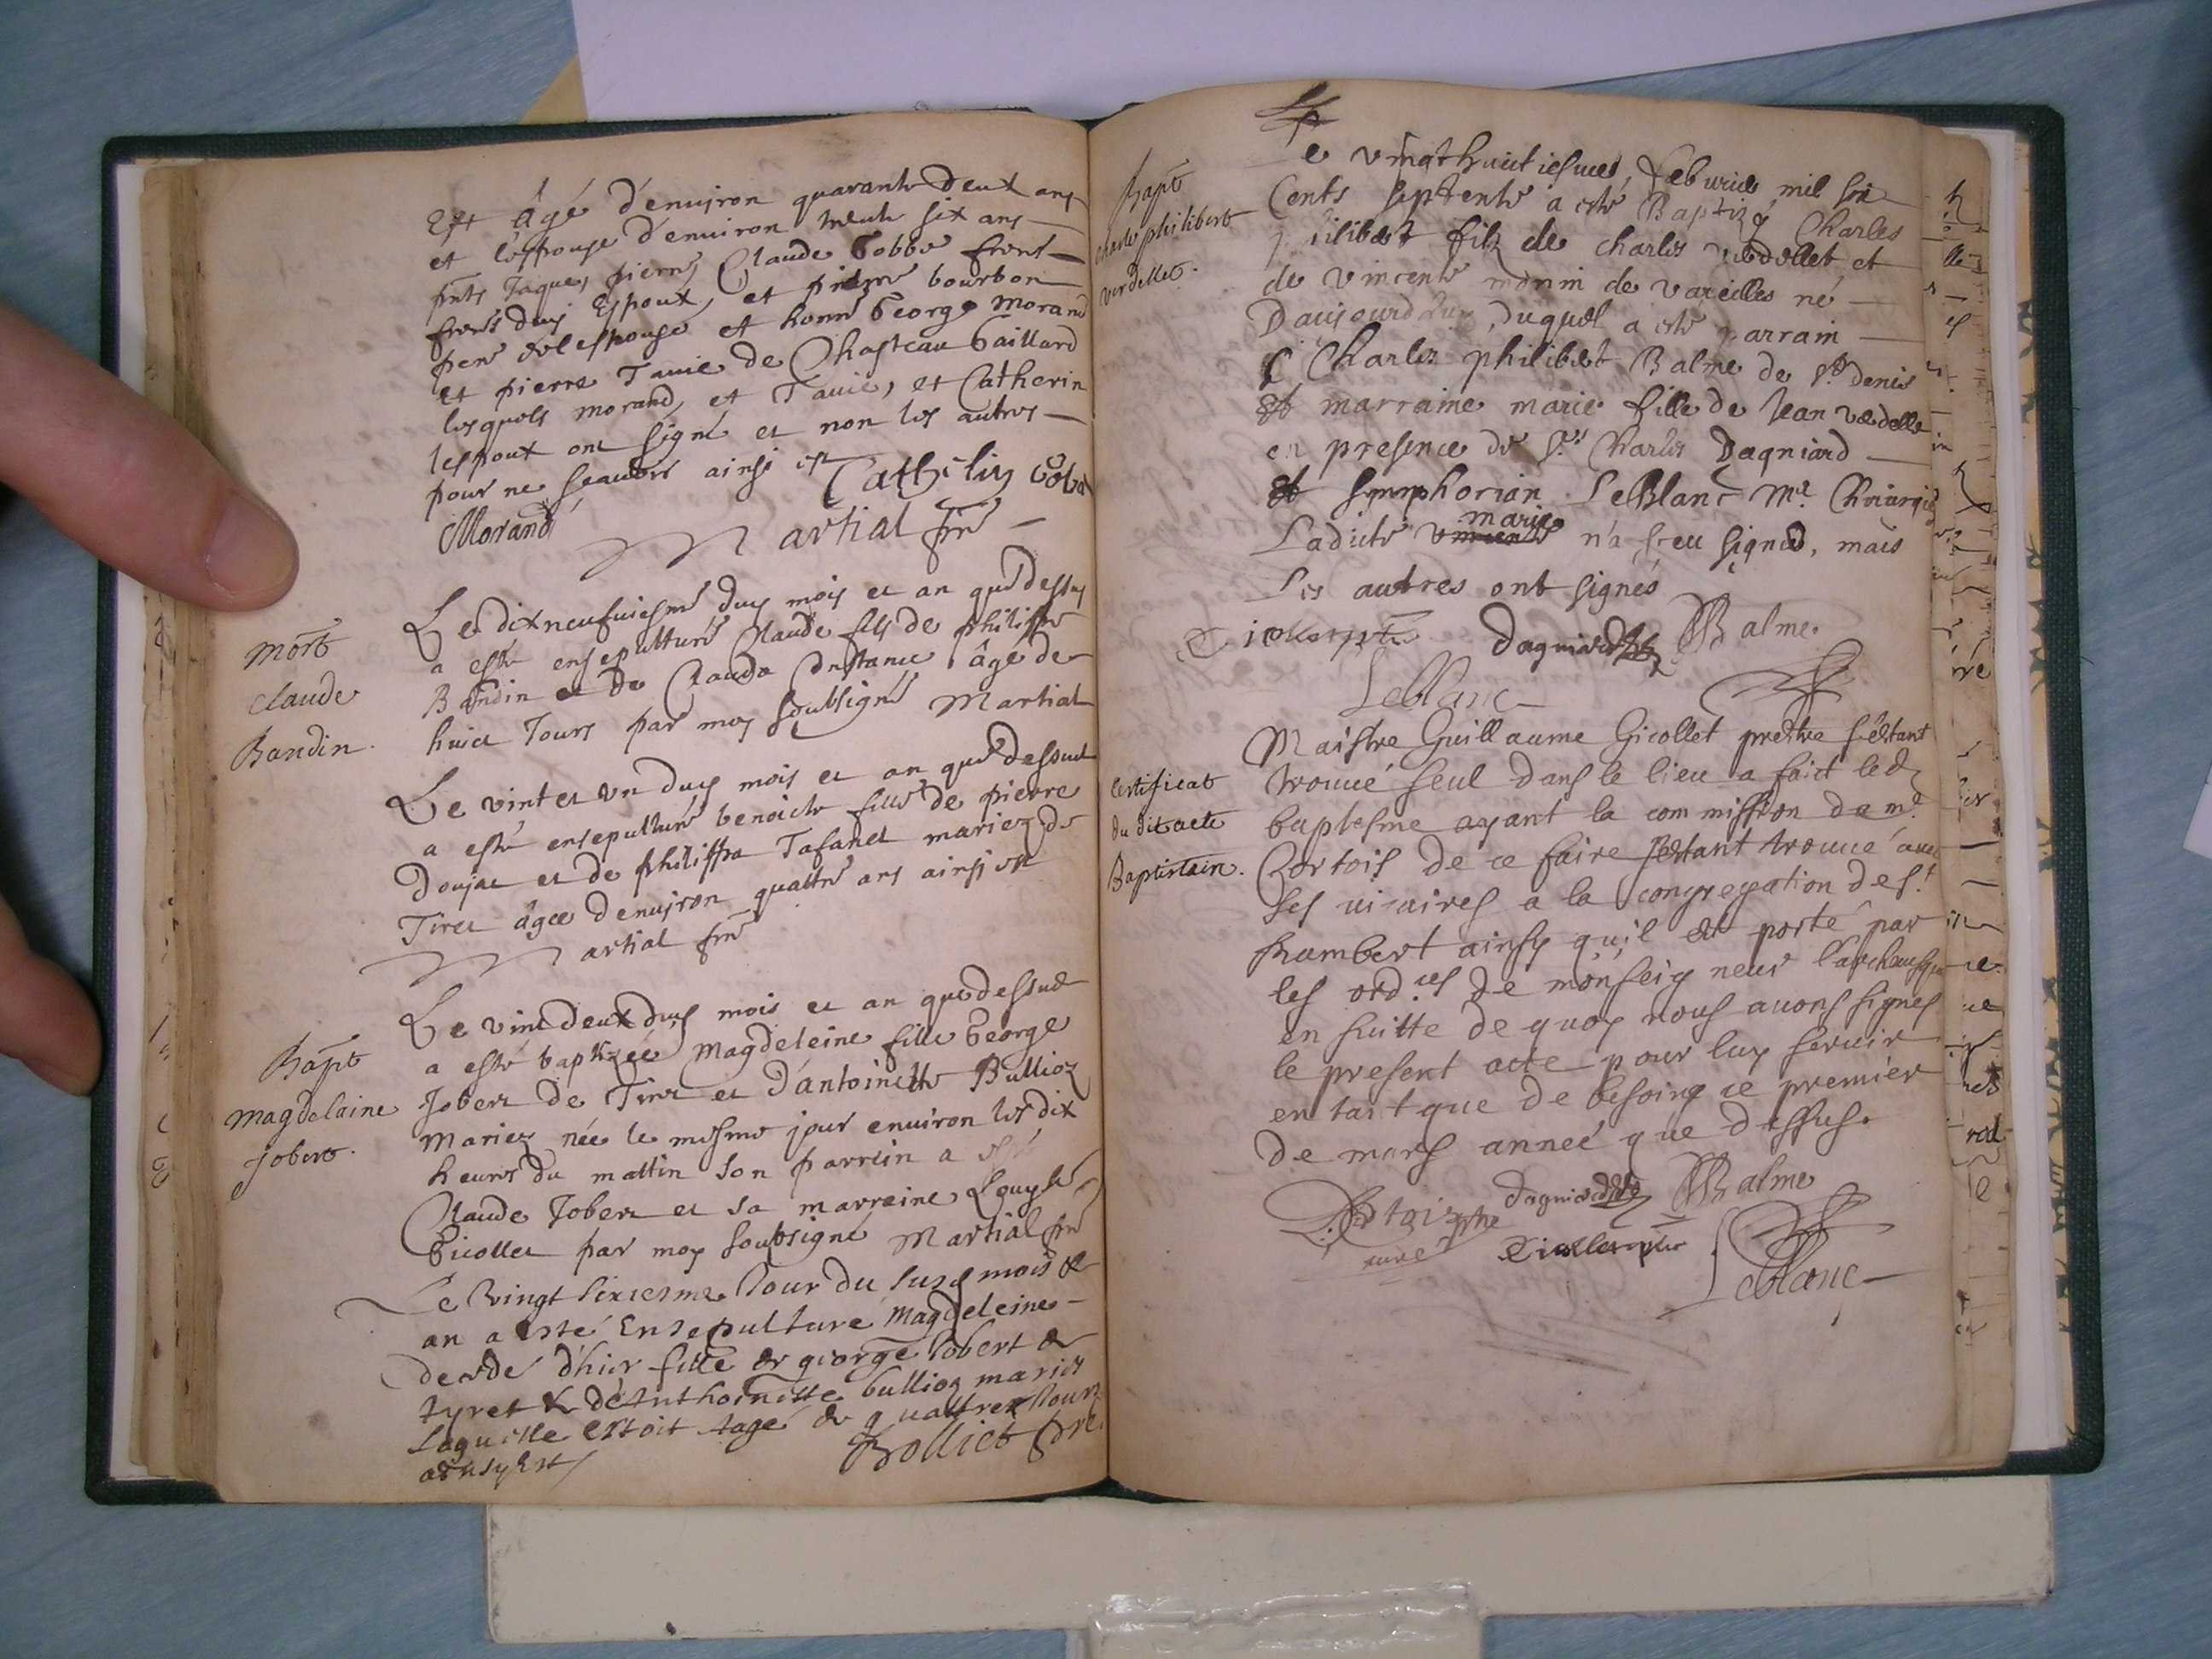 Est âgé d'enuiron quarante deux ans
et l'espouse d'enuiron trente six ans
pnts Jaques, pierre, Claude Gobbe freres
freres duy Espoux, et pierre bourbon
pere de lespouse et honn George Morand
et pierre Tauie de Chasteau Gaillard
lesquels morand, et Tauie, et Catherin
lespoux ont signé et non les autres
pour ne scauoir ainsi est Cathelin
Morand
Martial pre
Mort
claude
Bandin.
Le dixneufuiesme duy mois et an que dessus
a esté ensepulturé Claude fils de philippe
Bandin et de Clauda Constance âgé de
huict Jours par moy soubsigné Martial
Le vint et vn duy mois et an que dessus
a esté ensepulturé benoicte fille de pierre
Doujat et de philippa Tafanel mariez de
Tiret âgée denuiron quattre ans ainsi est
Martial pre
Bapt
magdelaine
Jobert.
Le vint deux duy mois et an que dessus
a esté baptizée Magdeleine fille George
Jobert de Tiret et d'antoinette Bullioz
Mariez née le mesme jour enuiron les dix
heures du mattin son parrein a esté
Claude Jobert et sa marreine Louyse
Gicollet par moy soubsigné Martial pre
Le Vingt sixiesme Jour du susd mois &
an a esté Ensepulture Magdeleine
decedé d'hier fille de george Jobert de
tyret & de Anthoinette bullioz mariés
Laquelle Estoit agé de quattre Jours
ainsy Est Bolliet pre.
Bapt
charle philibert
verdellet.
Le vingthuictiesme, feburier mil six
Cents septente a esté Baptizé Charles
philibert filz de charles verdellet et
de vincente monin de vareilles né
Daujourdhuy, duquel a esté parrain
S Charles philibert Balme de St denis
Et marraine marie fille de Jean verdellet
en presence de Srs Charles Dagniard
Et Symphorian LeBlanc Me Chirurgien
Ladicte vincente marie n'a sceu signer, mais
Les autres ont signés
Gicollet ptre Dagniard Balme.
Leblanc
Certificat
du dit acte
Baptistain.
Maistre Guillaume Gicollet prestre s'estant
trouué seul dans le lieu a faict led
baptesme ayant la commission de mr
Cortois de ce faire s'estant trouué auec
ses uicaires a la congregation de st
Rambert ainsy qu'il est porté par
les ord.ces de monseigneur l'archeuesque
en suitte de quoy nous auons signes
le present acte pour luy seruir
en tant que de besoing ce premier
de mars anneé que dessus.
Cortois ptre Dagniard Balme
curé Gicollet ptre Leblanc